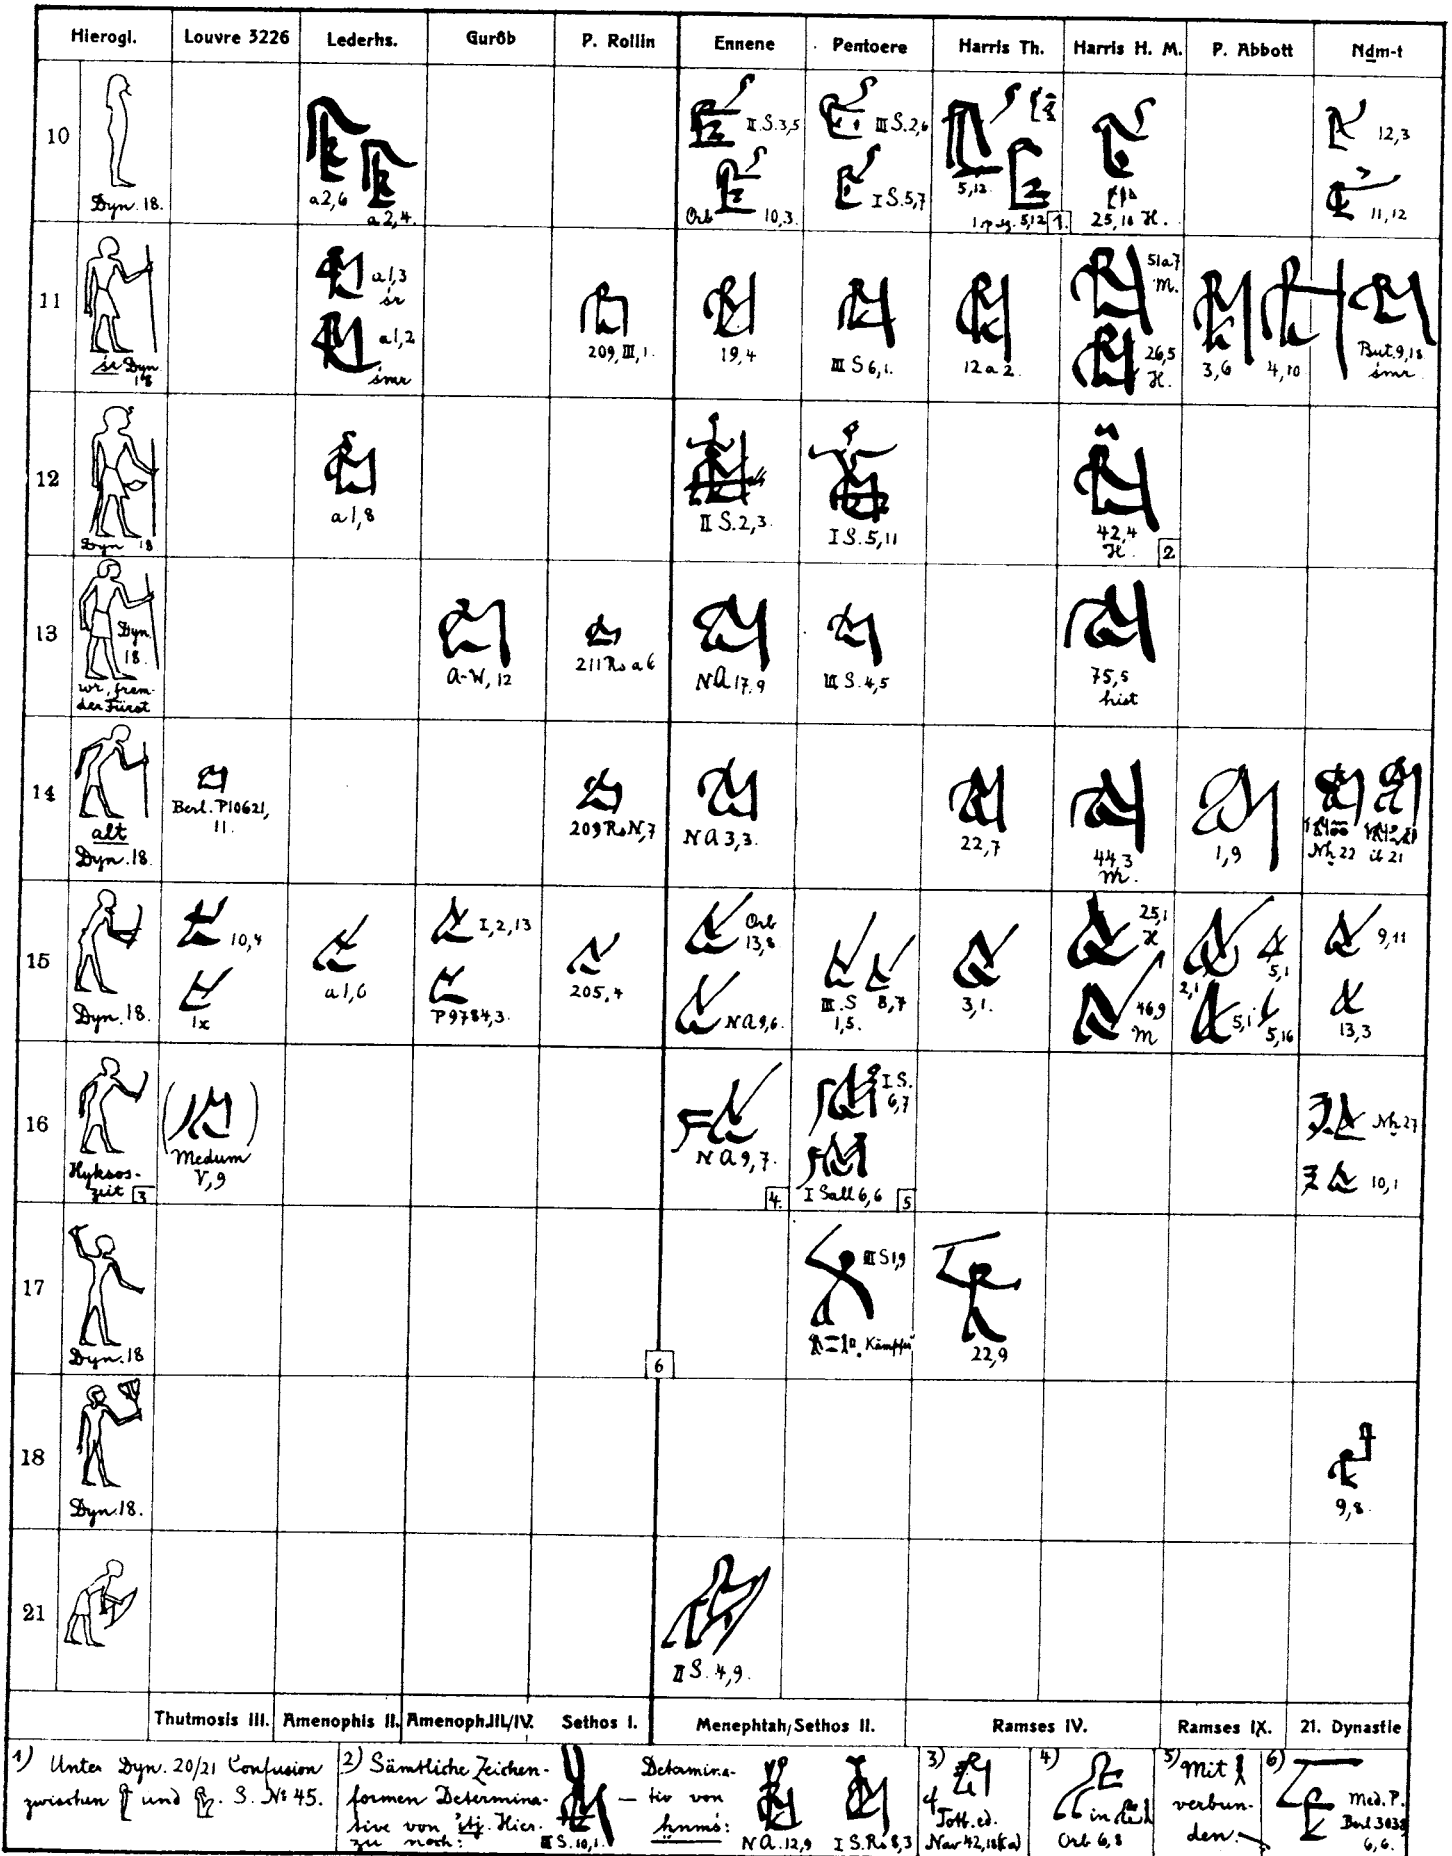 Hierogl. Louvre 3226 Lederhs. Gurôb P. Rollin Ennene Pentoere Harris Th. Harris H. M. P. Abbott Nḏm-t
10
Dyn. 18.
a2,6
a2,4.
II S.3,5
Orb 10,3.
III S.2,6
I S.5,7
5,12.
1.
25,10 H.
12,3
11,12
11
śr Dyn 18
a1,3
śr
a1,2
śmr
209,III,1.
19,4
III S 6,1.
12 a 2.
51a7
M.
26,5
H.
3,6
4,10
But.9,18
śmr.
12
Dyn 18
a1,8
II S.2,3.
I S.5,11
42,4
H.
2
13
Dyn
18.
wr, frem-
der Fürst
A-W, 12
211 Rs a 6
NA 17,9
III S.4,5
75,5
hist
14
alt
Dyn.18.
Berl. P10621,
11.
209 Rs N,7
NA 3,3.
22,7
44,3
M.
1,9
Nh 22
ib 21
15
Dyn.18.
10,4
1x
a1,6
I,2,13
P9784,3.
205,4
Orb
13,8
NA 9,6.
III.S
1,5.
8,7
3,1.
25,1
H
46,9
M
2,1
5,1
5,1
5,16
9,11
13,3
16
Hyksos-
zeit 3
(Medum
V,9)
NA 9,7.
4.
I S.
6,7
I Sall 6,6
5
Nh 27
10,1
17
Dyn.18
6
III S 1,9
Kämpfer
22,9
18
Dyn.18.
9,8.
21
II S. 4,9.
Thutmosis III. Amenophis II. Amenoph.III./IV. Sethos I. Menephtah/Sethos II. Ramses IV. Ramses IX. 21. Dynastie
1) Unter Dyn. 20/21 Confusion
zwischen und . S. No 45.
2) Sämtliche Zeichen-
formen Determina-
tive von ꜣtj. Hier-
zu noch:
III S.10,1.
— Determina-
tiv von
ḫnmś:
NA.12,9
I S.Rs 8,3
3)
cf
Totb. ed.
Nav 42,18
4)
in
Orb 6,8
5) Mit
verbun-
den.
6)
Med. P.
Berl 3038
6,6.